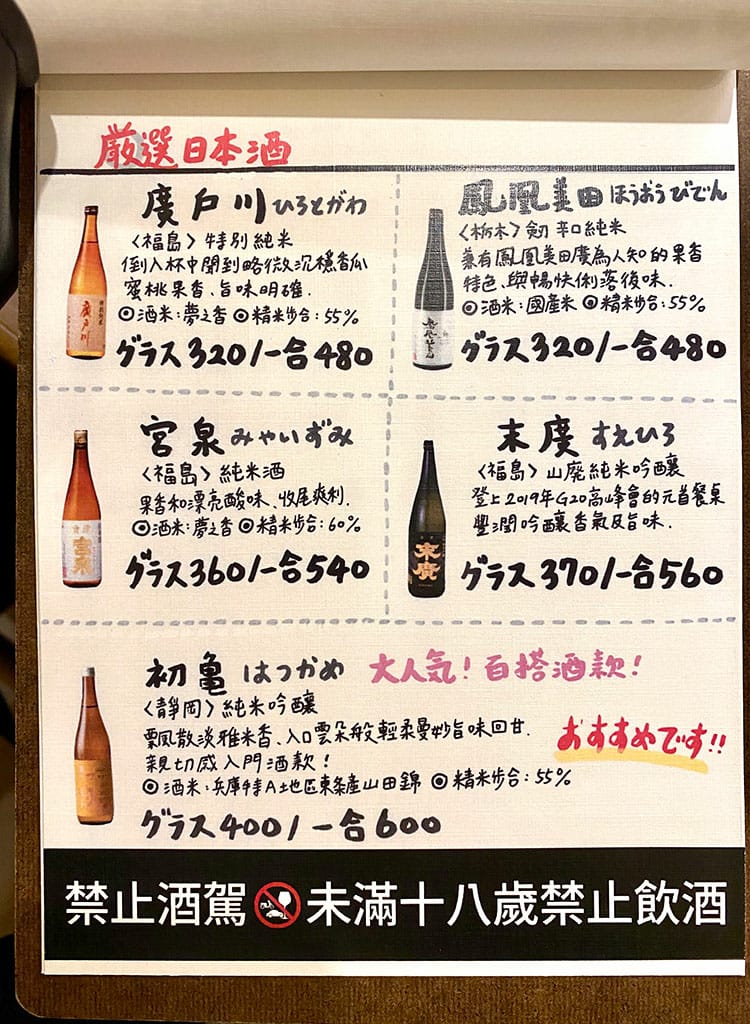 厳選日本酒
廣戸川 ひろとがわ
〈福島〉特別純米
倒入杯中聞到略微沉穩香瓜
蜜桃果香、旨味明確.
◎酒米:夢之香 ◎精米步合:55%
グラス320/一合480
鳳凰美田 ほうおうびでん
〈栃木〉劔 辛口純米
兼有鳳凰美田廣為人知的果香
特色、與暢快俐落後味.
◎酒米:國產米 ◎精米步合:55%
グラス320/一合480
宮泉 みやいずみ
〈福島〉純米酒
果香和漂亮酸味、收尾爽利.
◎酒米:夢之香 ◎精米步合:60%
グラス360/一合540
末廣 すえひろ
〈福島〉山廃純米吟釀
登上2019年G20高峰會的元首餐桌
豐潤吟釀香氣及旨味.
グラス370/一合560
初亀 はつかめ 大人気!百搭酒款!
〈靜岡〉純米吟釀
飄散淡雅米香、入口雲朵般輕柔曼妙旨味回甘.
親切感入門酒款!
おすすめです!!
◎酒米:兵庫特A地區東条産山田錦 ◎精米步合:55%
グラス400/一合600
禁止酒駕 未滿十八歲禁止飲酒
廣戸川
宮泉
末廣